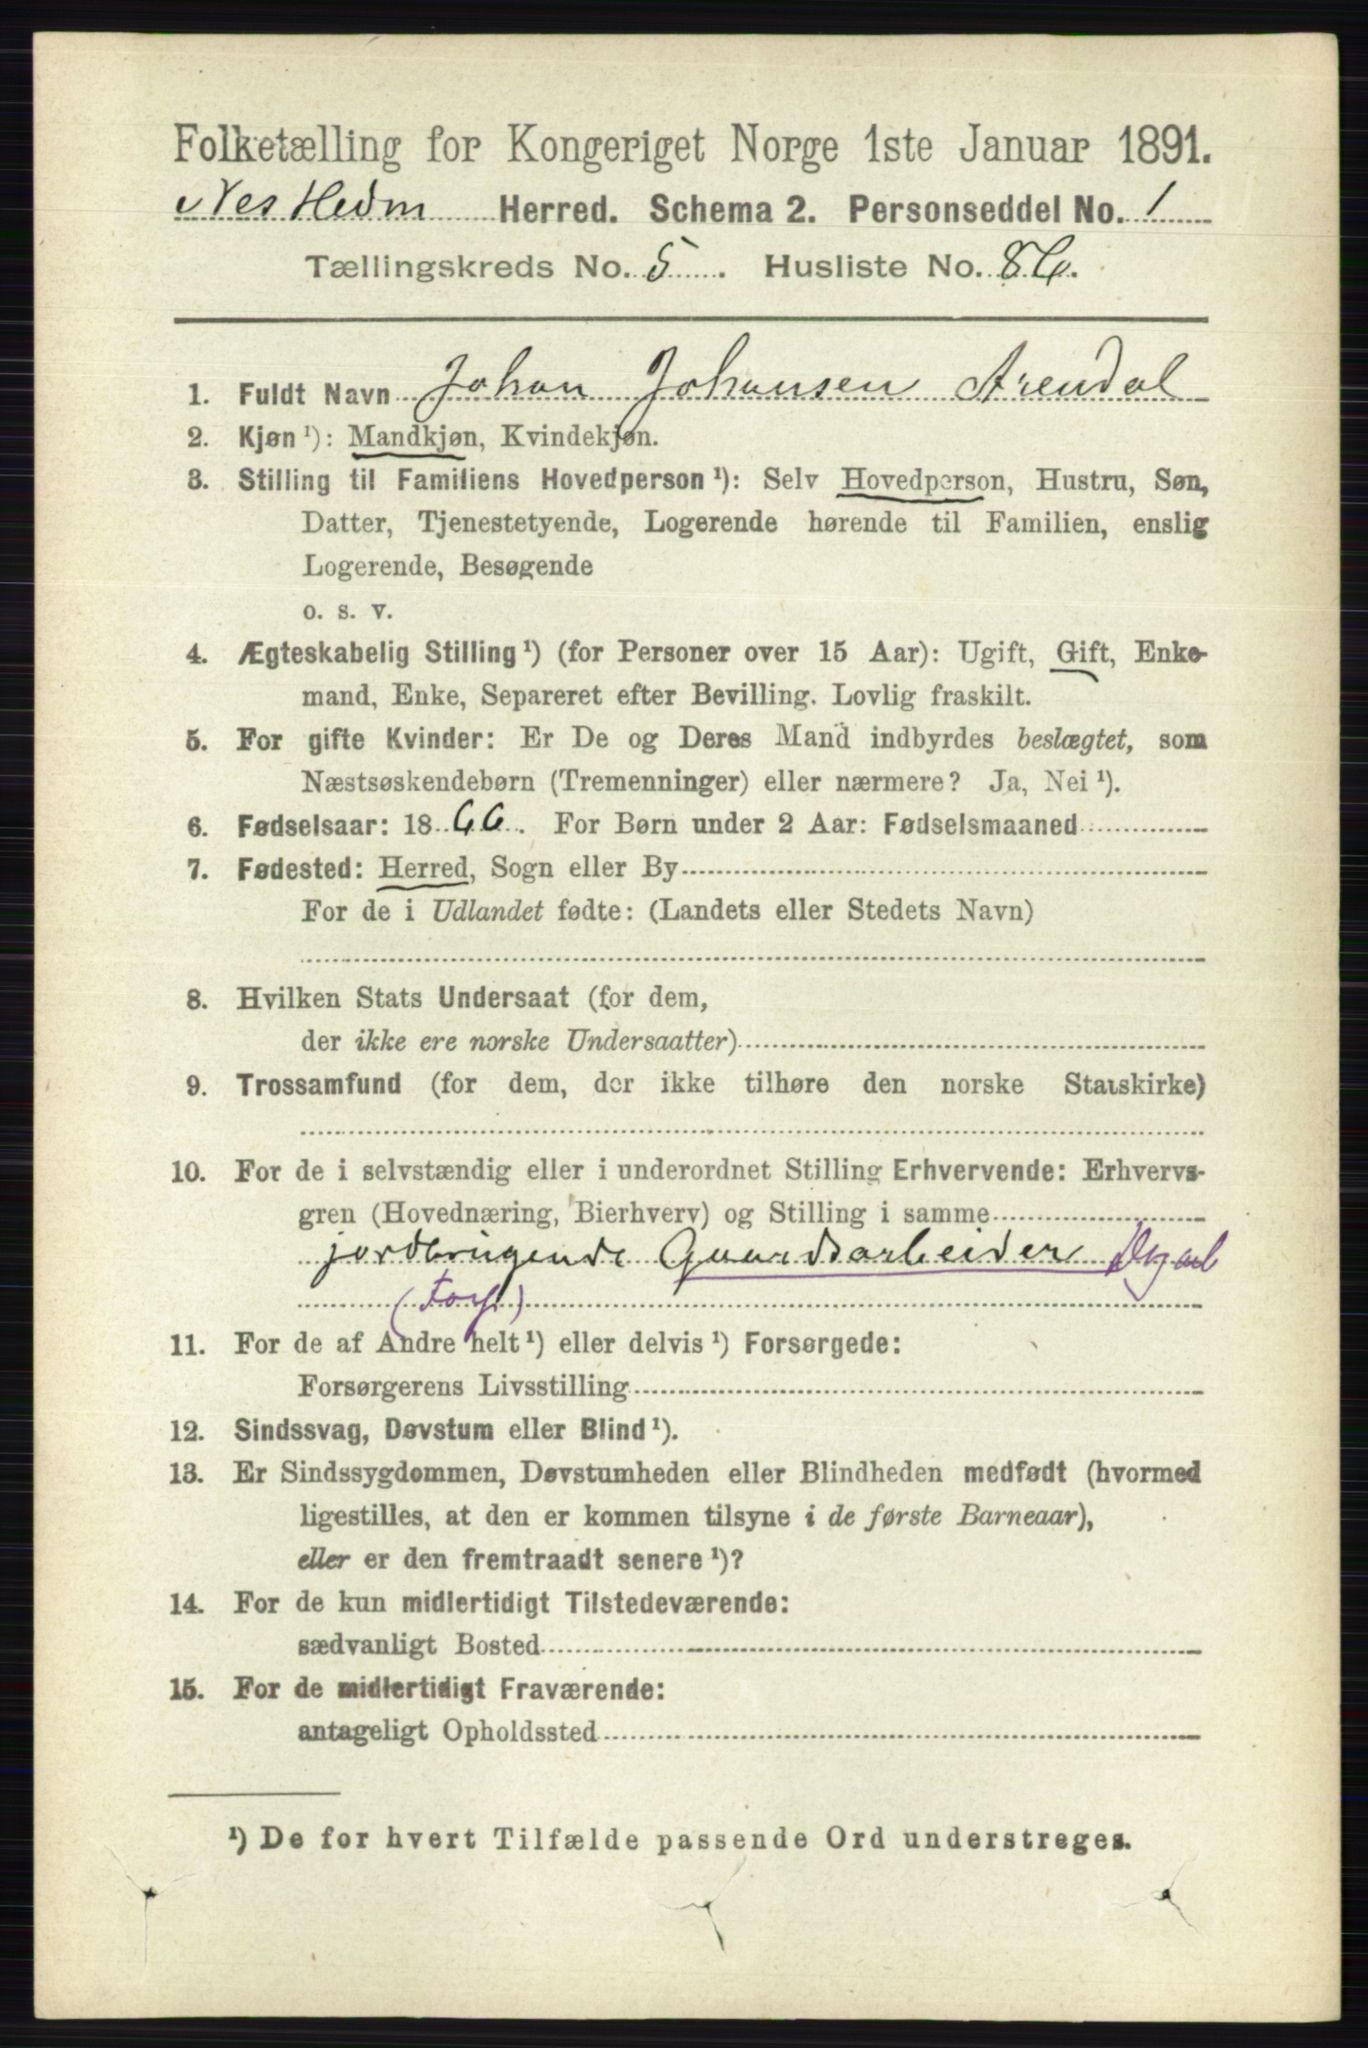 Folketælling for Kongeriget Norge 1ste Januar 1891.
Nes Hedm Herred. Schema 2. Personseddel No. 1
Tællingskreds No. 5. Husliste No. 86.
1. Fuldt Navn Johan Johansen Arendal
2. Kjøn ¹): Mandkjøn, Kvindekjøn.
3. Stilling til Familiens Hovedperson ¹): Selv Hovedperson, Hustru, Søn,
Datter, Tjenestetyende, Logerende hørende til Familien, enslig
Logerende, Besøgende
o. s. v.
4. Ægteskabelig Stilling ¹) (for Personer over 15 Aar): Ugift, Gift, Enke-
mand, Enke, Separeret efter Bevilling. Lovlig fraskilt.
5. For gifte Kvinder: Er De og Deres Mand indbyrdes beslægtet, som
Næstsøskendebørn (Tremenninger) eller nærmere? Ja, Nei ¹).
6. Fødselsaar: 1866. For Børn under 2 Aar: Fødselsmaaned
7. Fødested: Herred, Sogn eller By
For de i Udlandet fødte: (Landets eller Stedets Navn)
8. Hvilken Stats Undersaat (for dem,
der ikke ere norske Undersaatter)
9. Trossamfund (for dem, der ikke tilhøre den norske Statskirke)
10. For de i selvstændig eller i underordnet Stilling Erhvervende: Erhvervs-
gren (Hovednæring, Bierhverv) og Stilling i samme
jordbrugende Gaardsarbeider
11. For de af Andre helt ¹) eller delvis ¹) Forsørgede:
Forsørgerens Livsstilling
12. Sindssvag, Døvstum eller Blind ¹).
13. Er Sindssygdommen, Døvstumheden eller Blindheden medfødt (hvormed
ligestilles, at den er kommen tilsyne i de første Barneaar),
eller er den fremtraadt senere ¹)?
14. For de kun midlertidigt Tilstedeværende:
sædvanligt Bosted
15. For de midlertidigt Fraværende:
antageligt Opholdssted
¹) De for hvert Tilfælde passende Ord understreges.